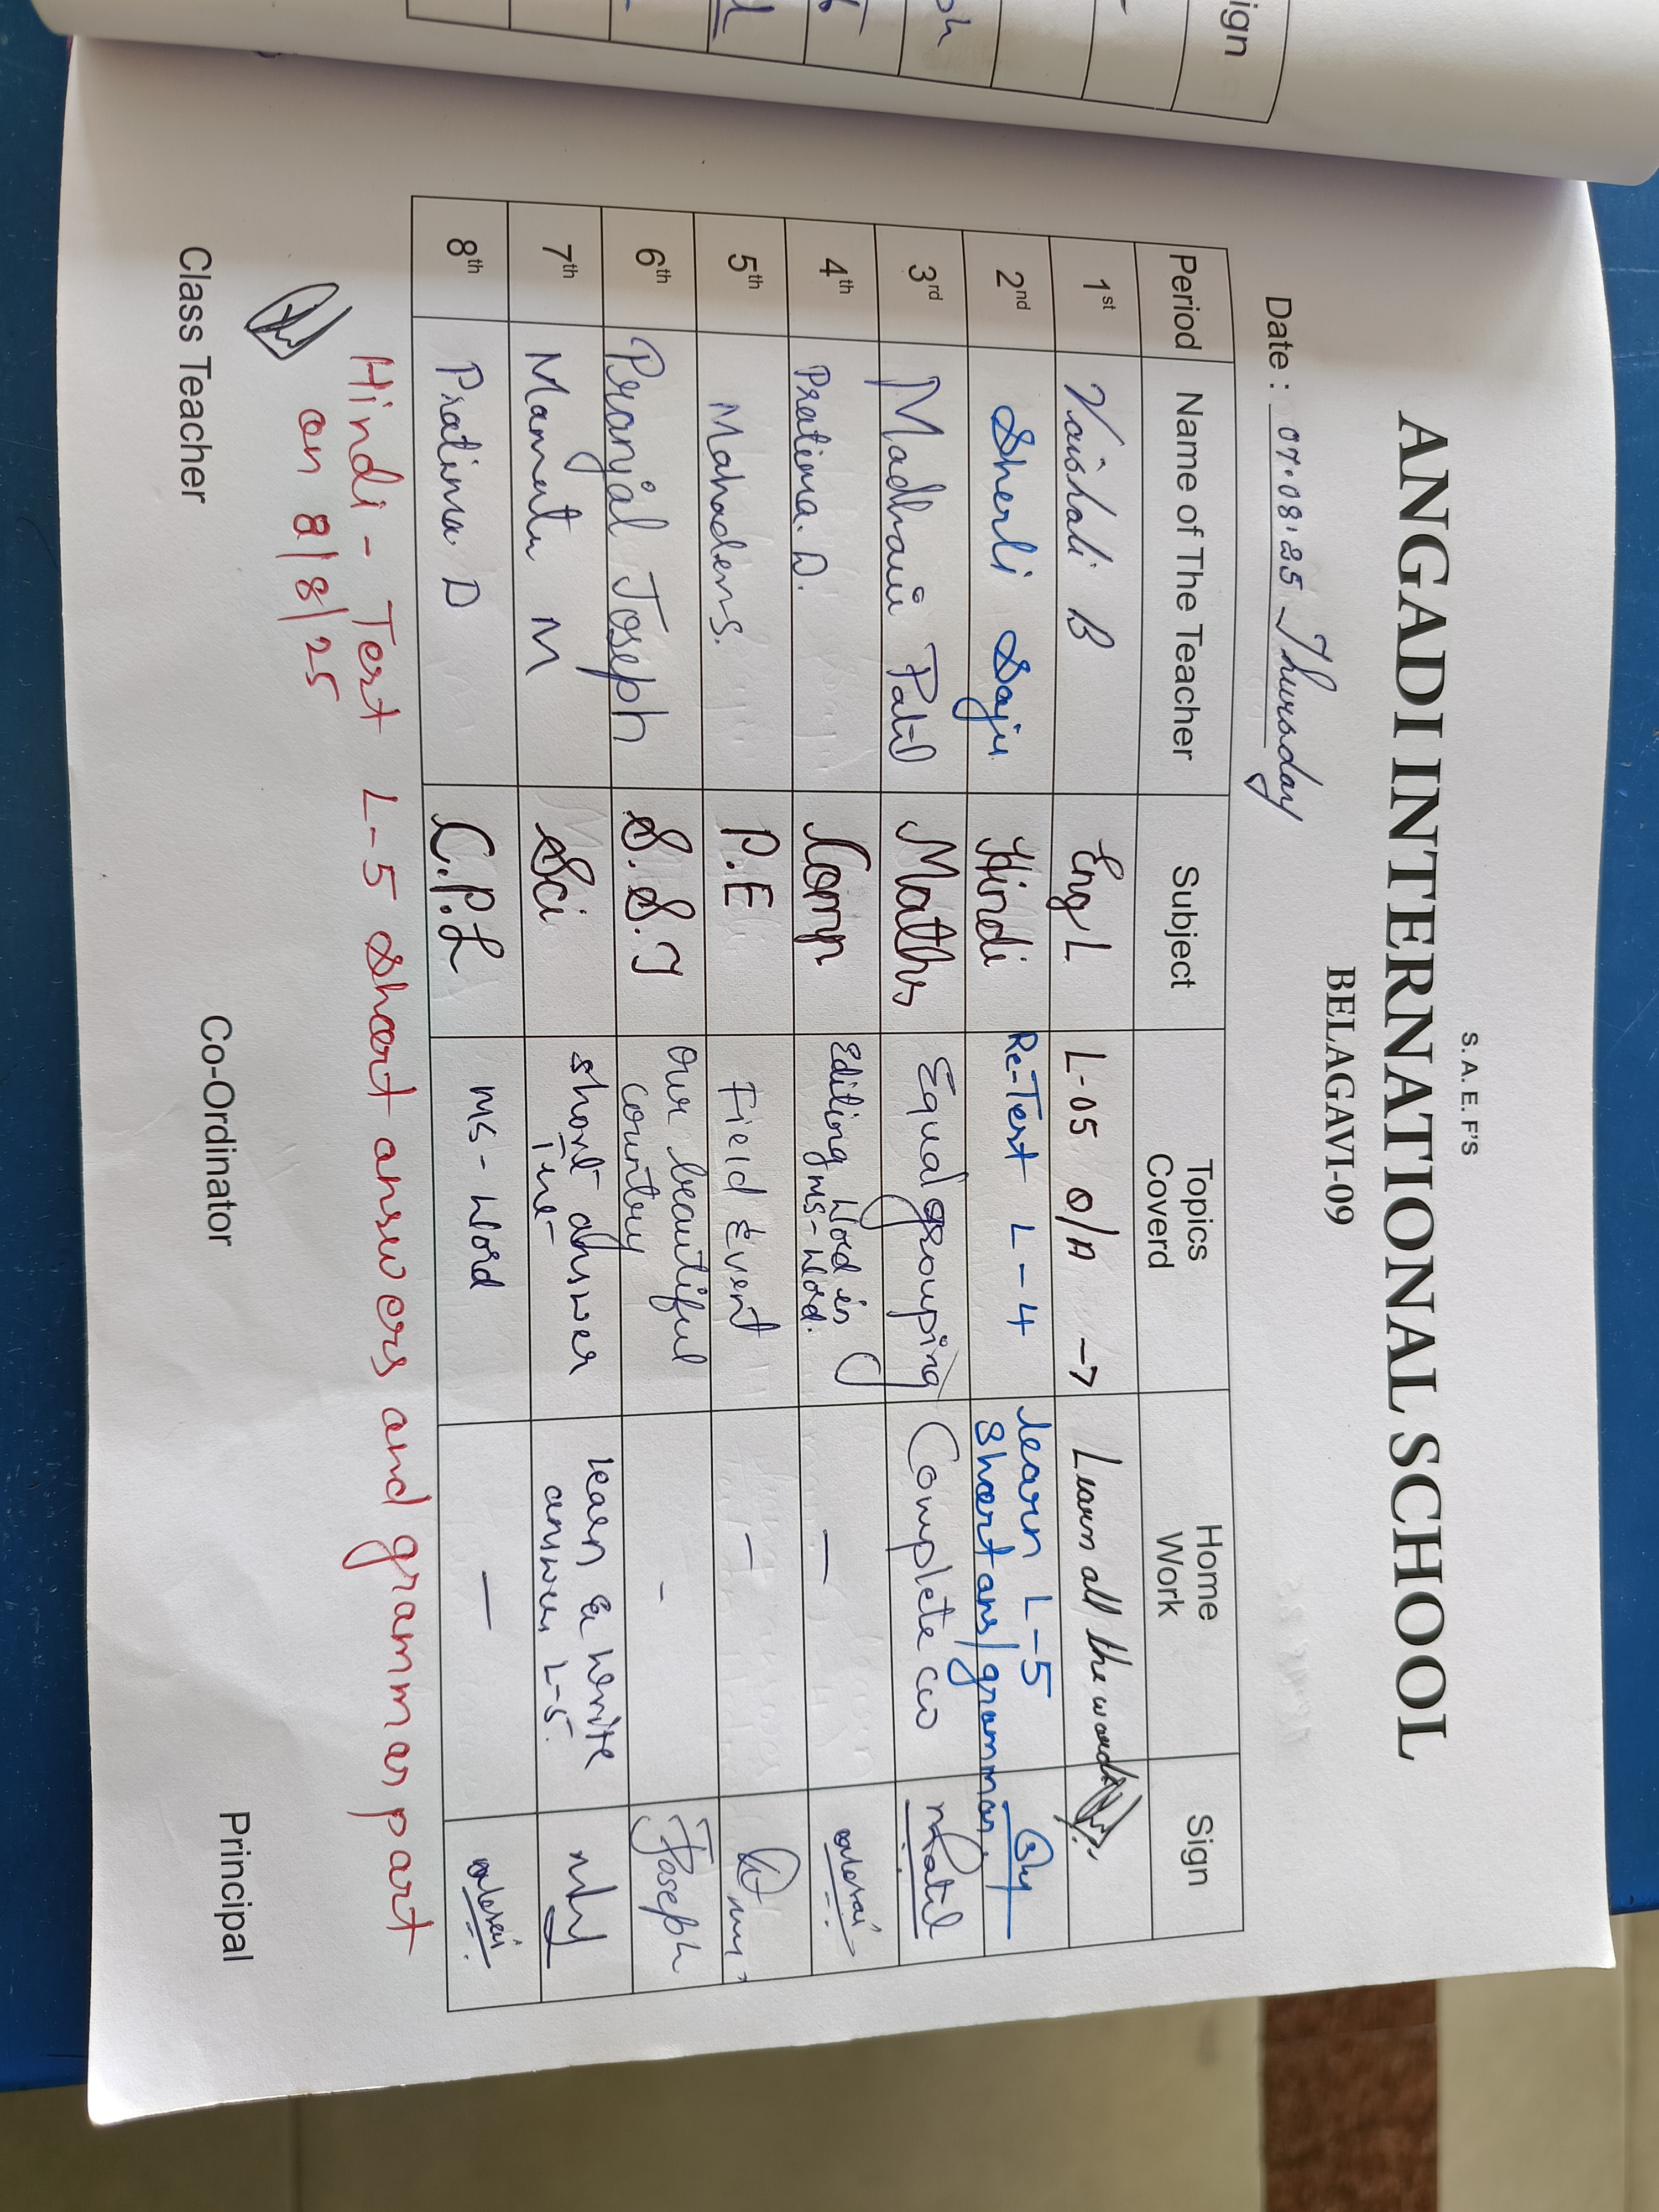 ign
S. A. E. F'S
ANGADI INTERNATIONAL SCHOOL
BELAGAVI-09
Date : 07.08.25 Thursday
Period Name of The Teacher Subject Topics Coverd Home Work Sign
1st Vaishali B Eng L L-05 Q/A → Learn all the words
2nd Sherli Saju Hindi Re-Test L-4 learn L-5 Short ans/grammar
3rd Madhavi Patil Maths Equal grouping Complete cw Patil
4th Pratima. D. Comp Editing Word in MS-Word. —
5th Mahadev S. P.E Field Event —
6th Pranjal Joseph S.S.T Our beautiful country - Joseph
7th Mamata M Sci Short answer learn & write answers L-5.
8th Pratima D C.P.L MS-Word —
Hindi - Test L-5 Short answers and grammar part
on 8/8/25
Class Teacher Co-Ordinator Principal